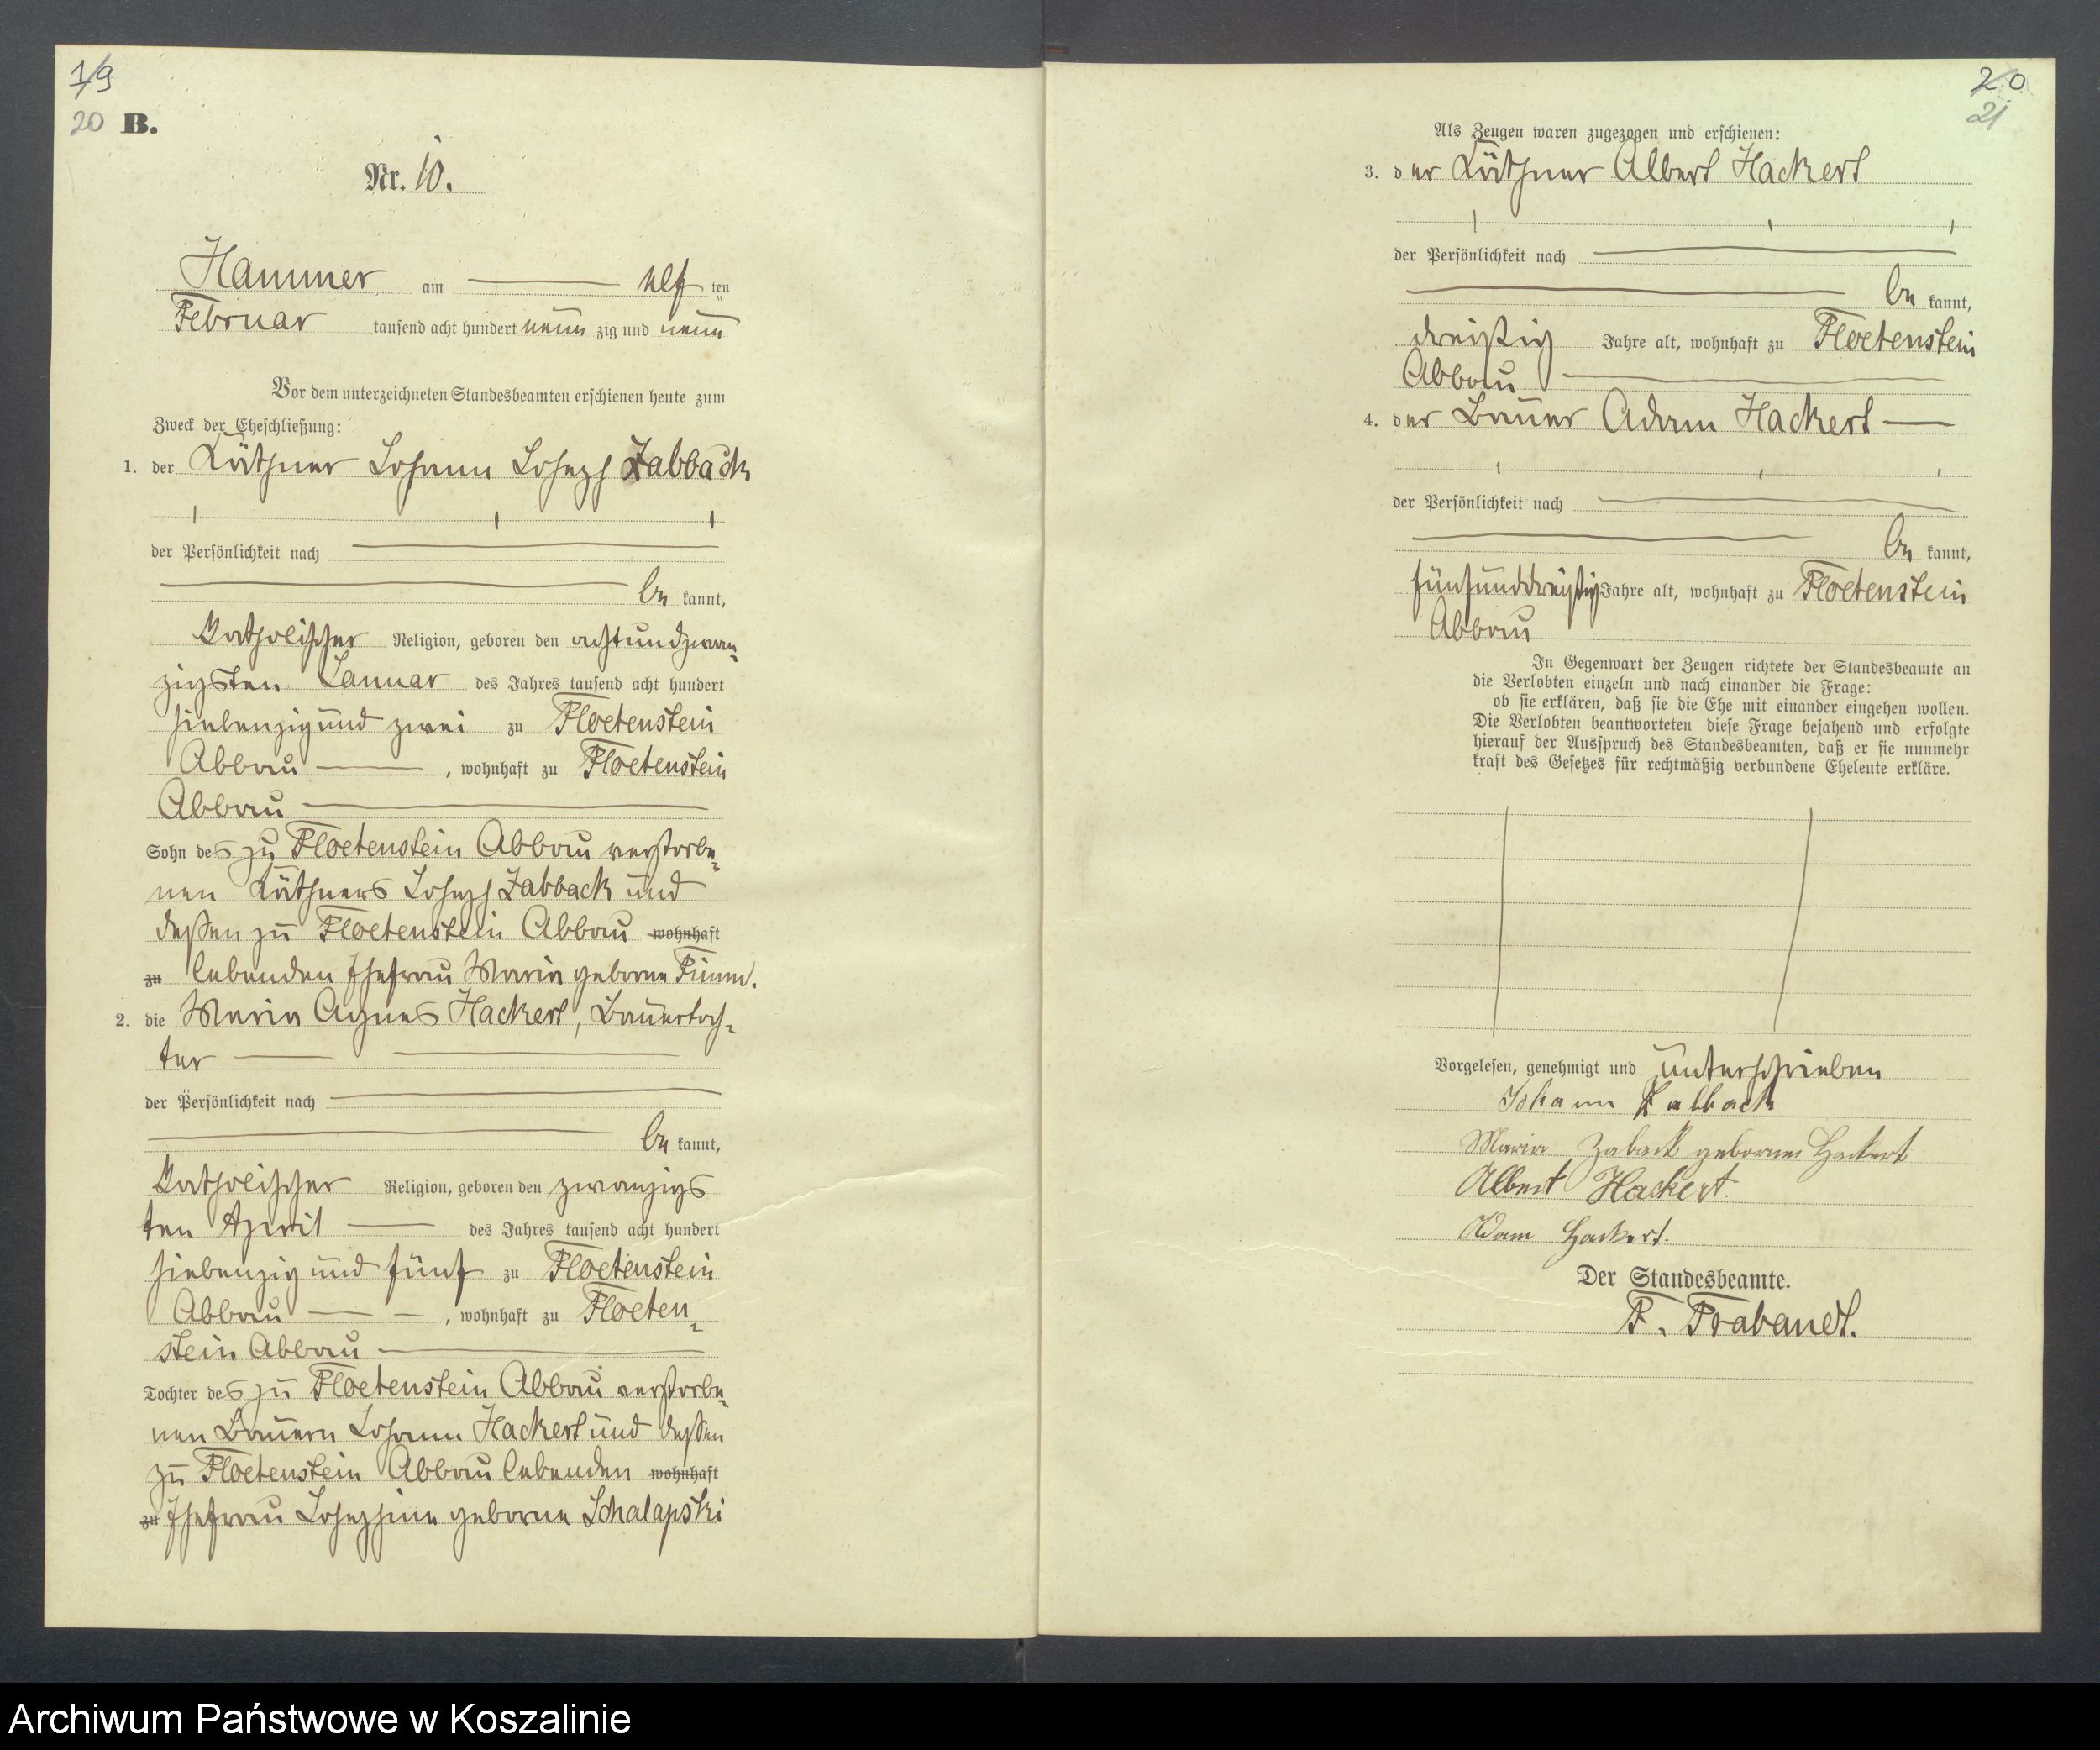 19
20 B.
Nr. 10.
Hammer am elf ten
Februar tausend acht hundert neun zig und neun
Vor dem unterzeichneten Standesbeamten erschienen heute zum
Zweck der Eheschließung:
1. der Käthner Johann Joseph Zabback
der Persönlichkeit nach
be kannt,
katholischer Religion, geboren den achtundzwan-
zigsten Januar des Jahres tausend acht hundert
siebenzig und zwei zu Floetenstein
Abbau , wohnhaft zu Floetenstein
Abbau
Sohn des zu Floetenstein Abbau verstorbe-
nen Käthners Joseph Zabback und
dessen zu Floetenstein Abbau wohnhaft
zu lebenden Ehefrau Maria geborne
2. die Maria Agnes Hackert, Bauertoch-
ter
der Persönlichkeit nach
be kannt,
katholischer Religion, geboren den zwanzigs
ten April des Jahres tausend acht hundert
siebenzig und fünf zu Floetenstein
Abbau , wohnhaft zu Floeten-
stein Abbau
Tochter des zu Floetenstein Abbau verstorbe-
nen Bauern Johann Hackert und dessen
zu Floetenstein Abbau lebenden wohnhaft
zu Ehefrau Josephine geborne Schalapski
20
21
Als Zeugen waren zugezogen und erschienen:
3. der Käthner Albert Hackert
der Persönlichkeit nach
be kannt,
dreißig Jahre alt, wohnhaft zu Floetenstein
Abbau
4. der Bauer Adam Hackert
der Persönlichkeit nach
be kannt,
fünfunddreißig Jahre alt, wohnhaft zu Floetenstein
Abbau
In Gegenwart der Zeugen richtete der Standesbeamte an
die Verlobten einzeln und nach einander die Frage:
ob sie erklären, daß sie die Ehe mit einander eingehen wollen.
Die Verlobten beantworteten diese Frage bejahend und erfolgte
hierauf der Ausspruch des Standesbeamten, daß er sie nunmehr
kraft des Gesetzes für rechtmäßig verbundene Eheleute erkläre.
Vorgelesen, genehmigt und unterschrieben
Johann Zabback
Maria Zaback geborne Hackert
Albert Hackert.
Adam Hackert.
Der Standesbeamte.
F. Trabandt.
Archiwum Państwowe w Koszalinie